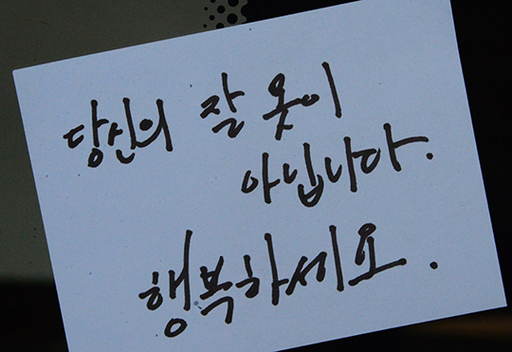 당신의 잘 못이
아닙니다.
행복하세요.